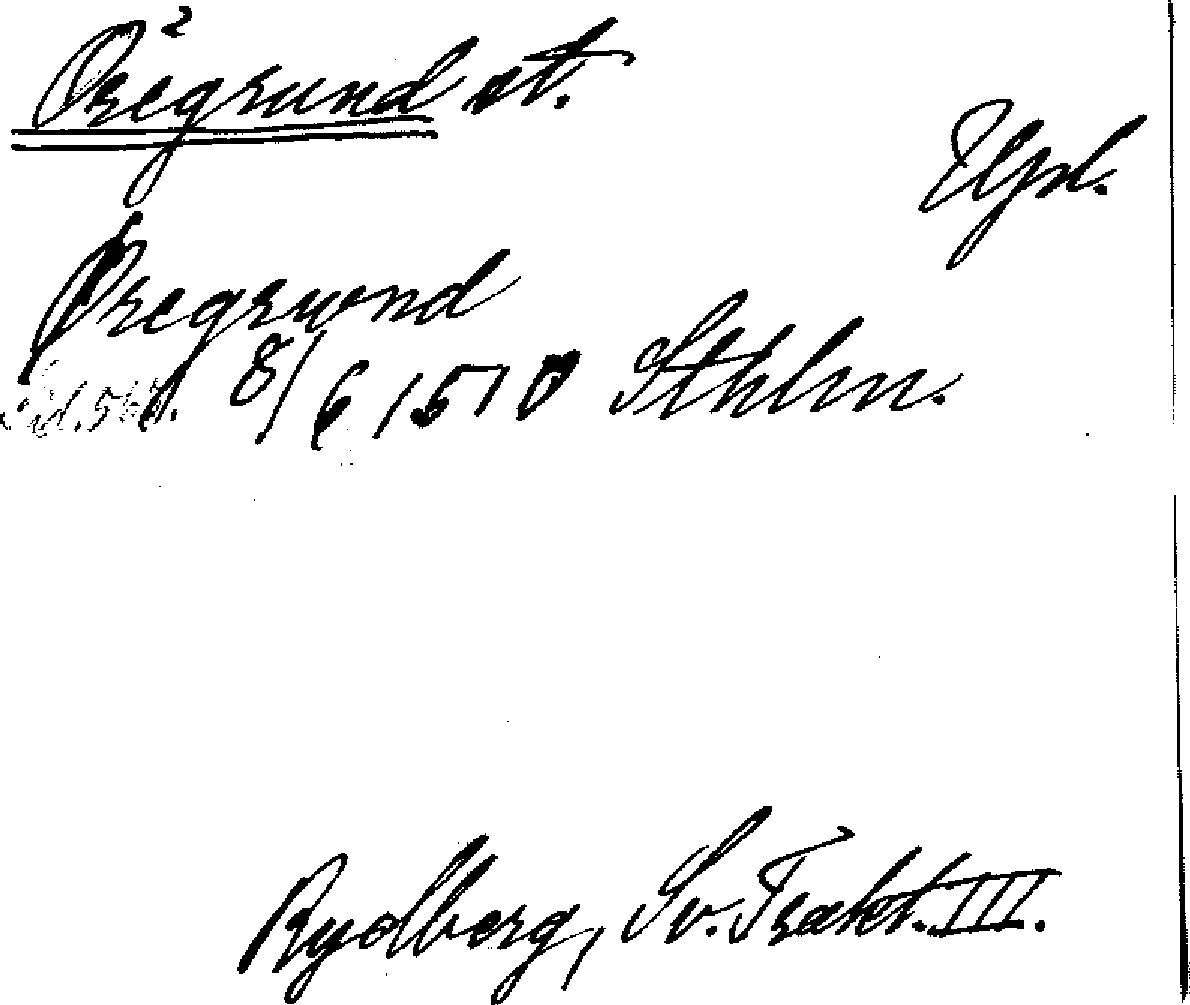 Öregrund st.
Upl.
Øregrund
Sid. 567. 8/6 1510 Sthlm.
Rydberg, Sv. Trakt. III.